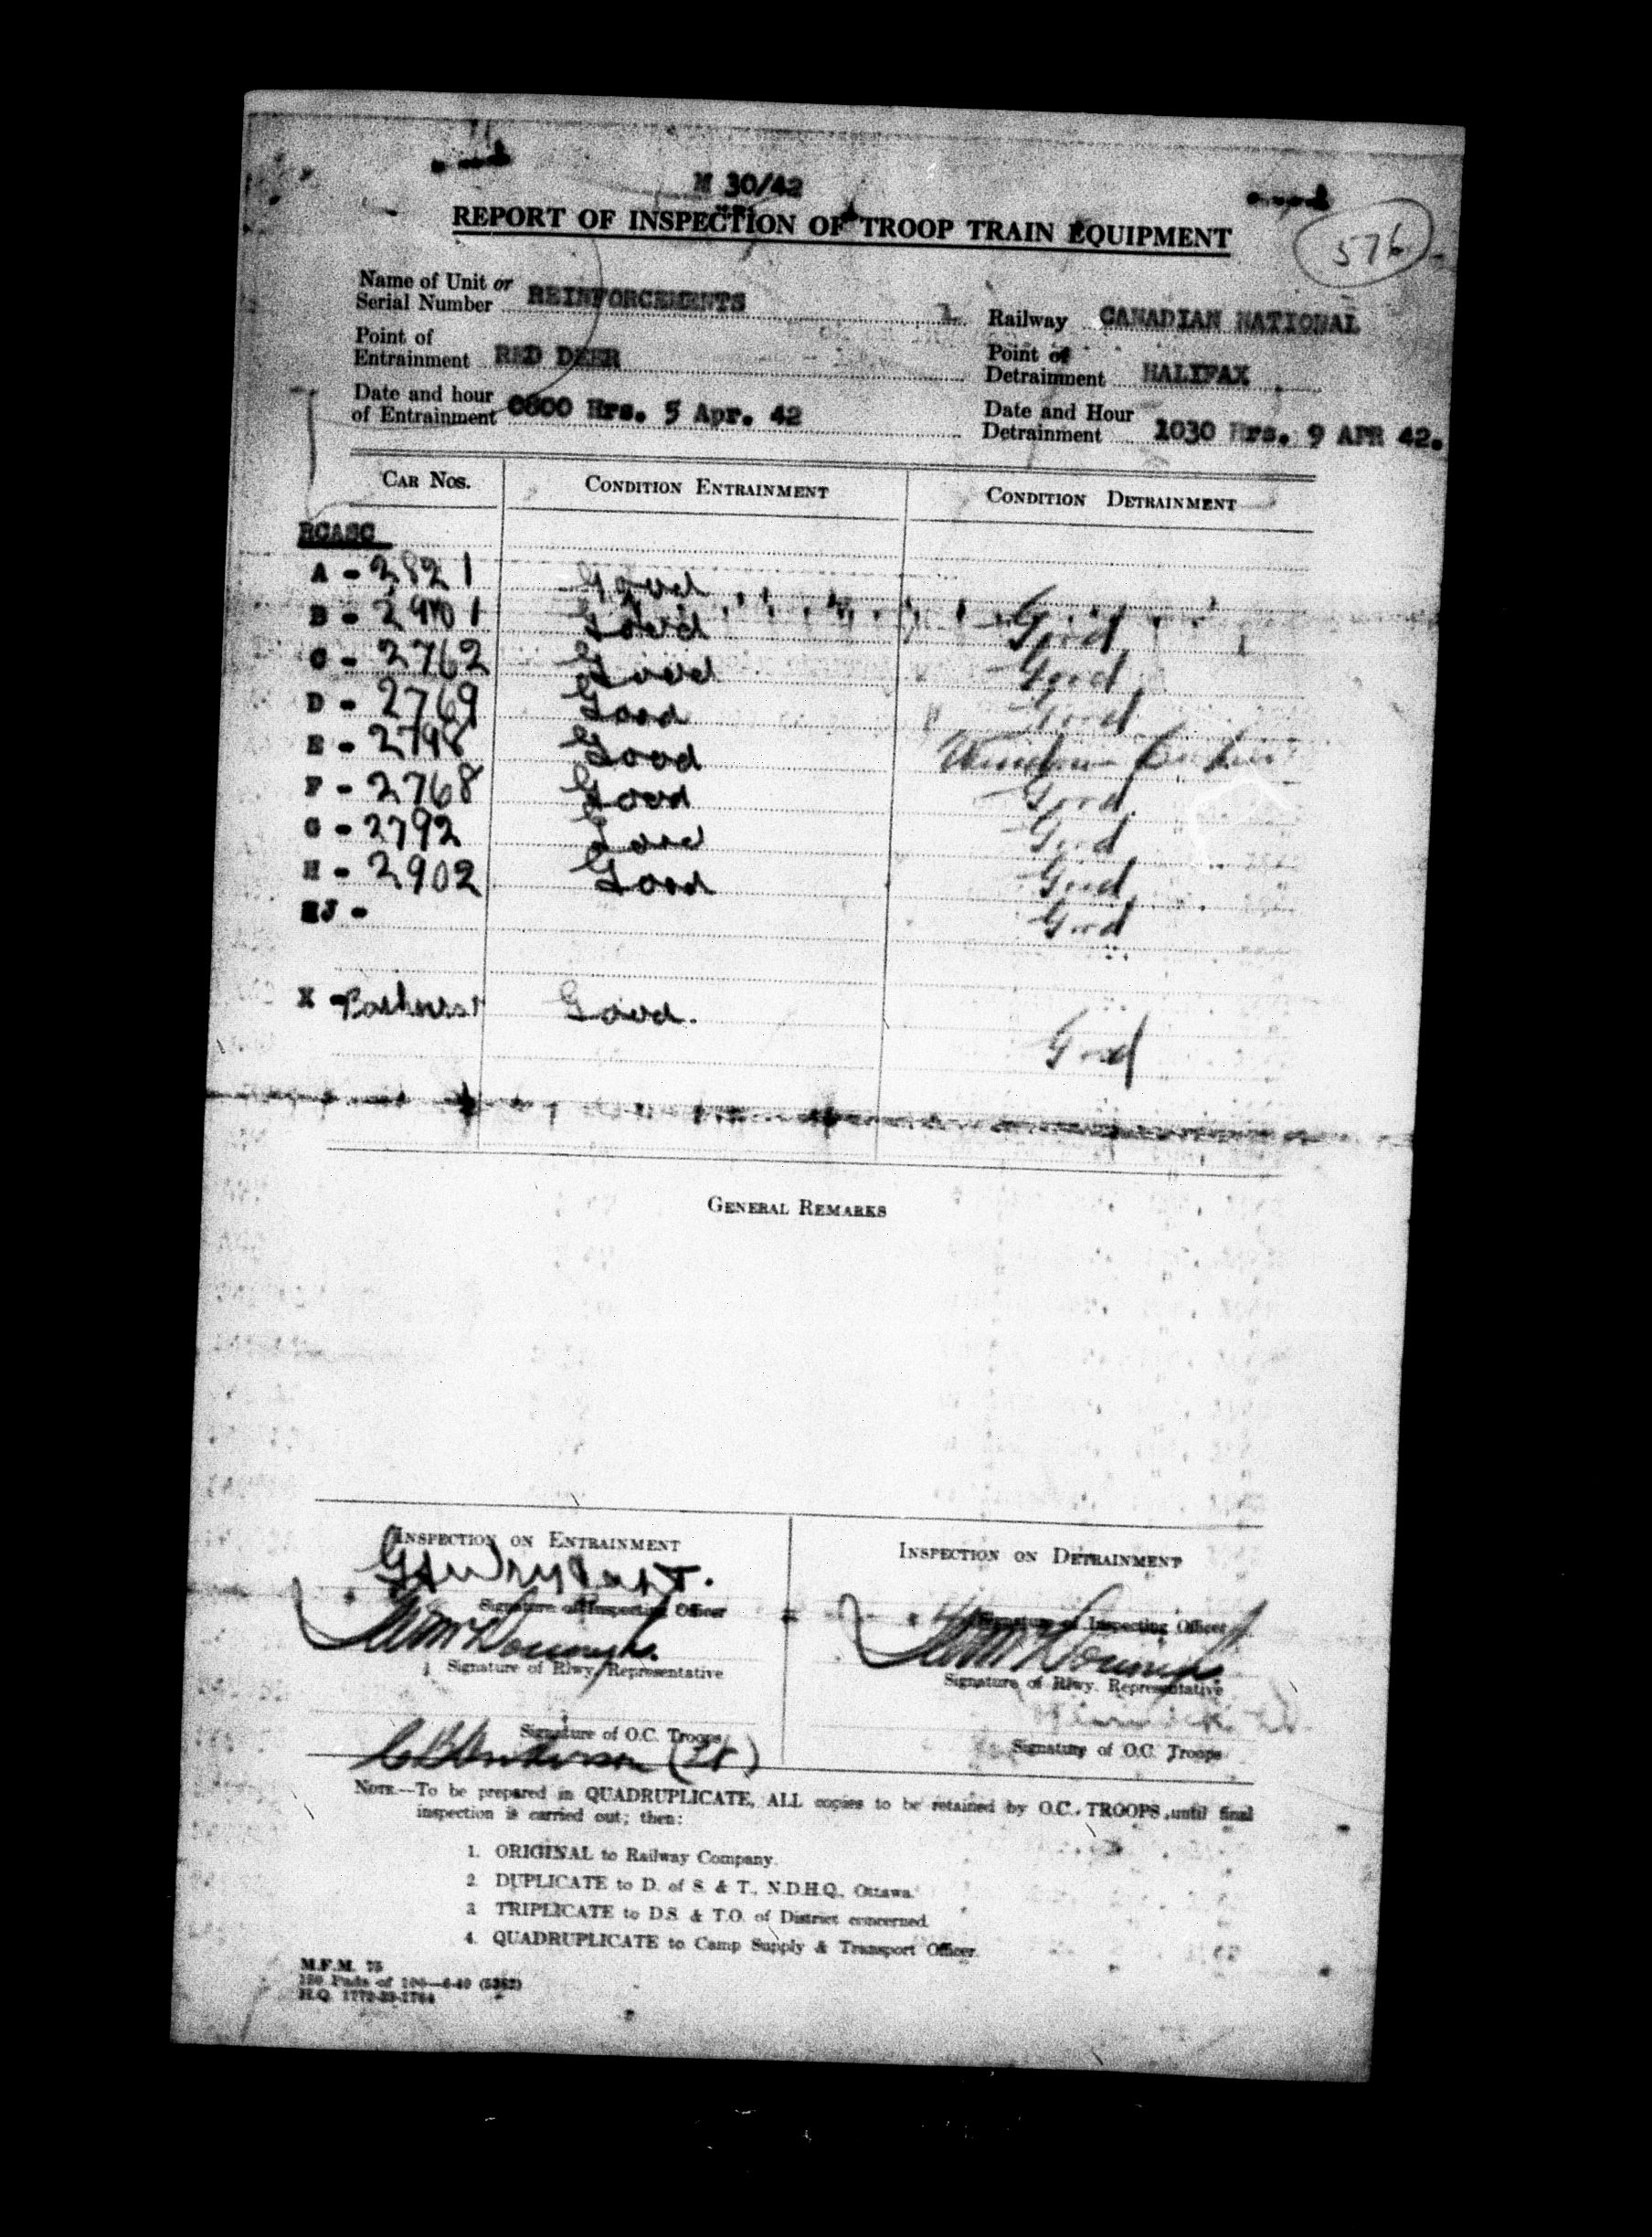 M 30/42
REPORT OF INSPECTION OF TROOP TRAIN EQUIPMENT
576
Name of Unit or
Serial Number REINFORCEMENTS 1 Railway CANADIAN NATIONAL
Point of Entrainment RED DEER Point of Detrainment HALIFAX
Date and hour of Entrainment 0600 Hrs. 5 Apr. 42 Date and Hour Detrainment 1030 Hrs. 9 APR 42.
CAR NOS. CONDITION ENTRAINMENT CONDITION DETRAINMENT
RCASC
A - 2821 Good
B - Good Good
C - 2762 Good Good
D - 2769 Good Good
E - 2798 Good Window
F - 2768 Good Good
G - 2792 Good Good
H - 2902 Good Good
J - Good
X - Good. Good
GENERAL REMARKS
INSPECTION ON ENTRAINMENT INSPECTION ON DETRAINMENT
Signature of Inspecting Officer Signature of Inspecting Officer
Signature of Rlwy. Representative Signature of Rlwy. Representative
Signature of O.C. Troops Signature of O.C. Troops
(Lt)
NOTE.—To be prepared in QUADRUPLICATE, ALL copies to be retained by O.C. TROOPS until final
inspection is carried out; then:
1. ORIGINAL to Railway Company.
2. DUPLICATE to D. of S. & T., N.D.H.Q., Ottawa.
3. TRIPLICATE to D.S. & T.O. of District concerned.
4. QUADRUPLICATE to Camp Supply & Transport Officer.
M.F.M. 75
Pads of
H.Q.